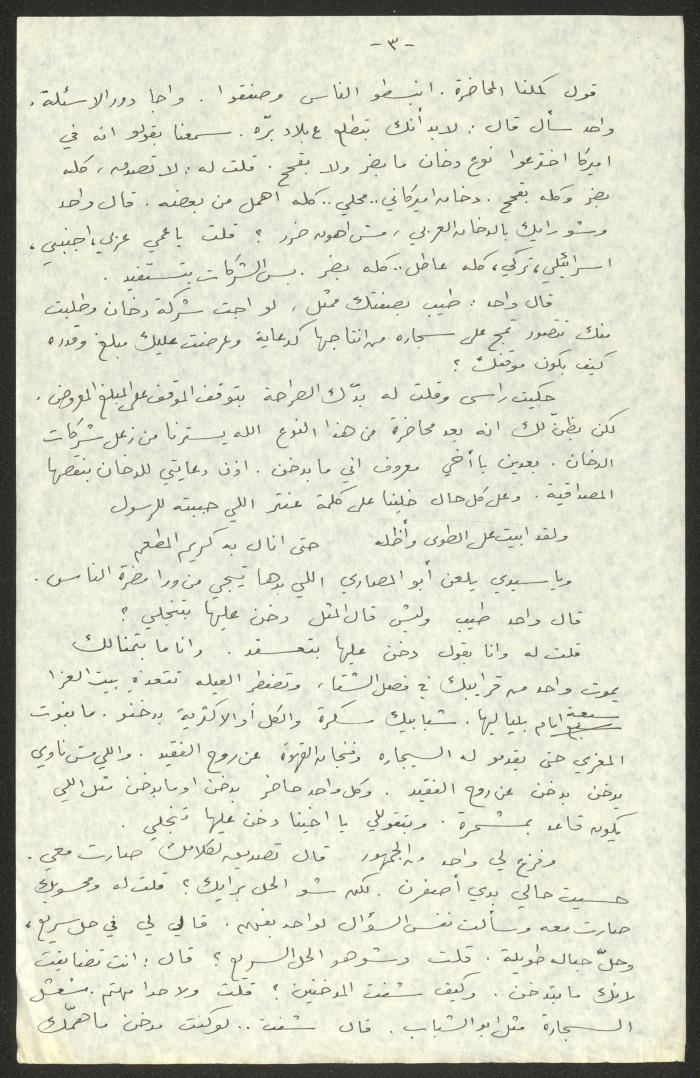 -٣-
قول كملنا المحاضرة. انبسطو الناس وصفقوا. واجا دور الاسئلة.
واحد سأل قال: لابد أنك بتطلع ع بلاد برّه. سمعنا بقولو انه في
امريكا اخترعوا نوع دخان ما بضر ولا بقحح. قلت له: لا تصدق، كله
بضر وكله بقحح. دخان امريكاني.. محلي.. كله اهمل من بعضه. قال واحد
وشو رايك بالدخان العربي، مش اهون ضرر؟ قلت يا عمي عربي، اجنبي،
اسرائيلي، تركي، كله عاطل.. كله بضر. بس الشركات بتستفيد.
قال واحد: طيب بصفتك ممثل، لو اجت شركة دخان وطلبت
منك تتصور تمج على سجاره من انتاجها كدعاية وعرضت عليك مبلغ وقدره
كيف بكون موقفك؟
حكيت راسي وقلت له بدّك الصراحة بتوقف الموقف على المبلغ المعروض.
لكن بظنّ لك انه بعد محاضرة من هذا النوع الله يسترنا من زعل شركات
الدخان. بعدين يا أخي معروف اني ما بدخن. اذن دعايتي للدخان بنقصها
المصداقية. وعلى كل حال خلينا على كلمة عنتر اللي حببته للرسول
ولقد ابيت على الطوى وأظله حتى انال به كريم المطعم
ويا سيدي يلعن أبو المصاري اللي بدها تيجي من ورا مضرة الناس.
قال واحد طيب وليش قال المثل دخن عليها بتنجلي؟
قلت له وانا بقول دخن عليها بتعقد. وانا ما بتمنالك
يموت واحد من قرايبك في فصل الشتا، وتضطر العيله تقعد في بيت العزا
سبعة ايام بلياليها. شبابيك مسكرة والكل أو الاكثرية بدخنو. ما بفوت
المعزي حتى يقدمو له السيجاره وفنجان القهوة عن روح الفقيد. واللي مش ناوي
يدخن بدخن عن روح الفقيد. وكل واحد حاضر بدخن او ما بدخن مثل اللي
يكون قاعد بمشحرة. وبتقوللي يا اخينا دخن عليها تنجلي.
وفزع لي واحد من الجمهور قال تصديق لكلامك صارت معي.
حسيت حالي بدي أصفرن. لكن شو الحل برأيك؟ قلت له ومحسوبك
صارت معه وسألت نفس السؤال لواحد بفهم. قالي لي في حل سريع،
وحلّ حباله طويلة. قلت وشو هو الحل السريع؟ قال: انت تضايقت
لانك ما بتدخن. وكيف شفت المدخنين؟ قلت ولا حدا مهتم. بشعل
السجارة مثل ابو الشباب. قال شفت.. لو كنت مدخن ما همّك